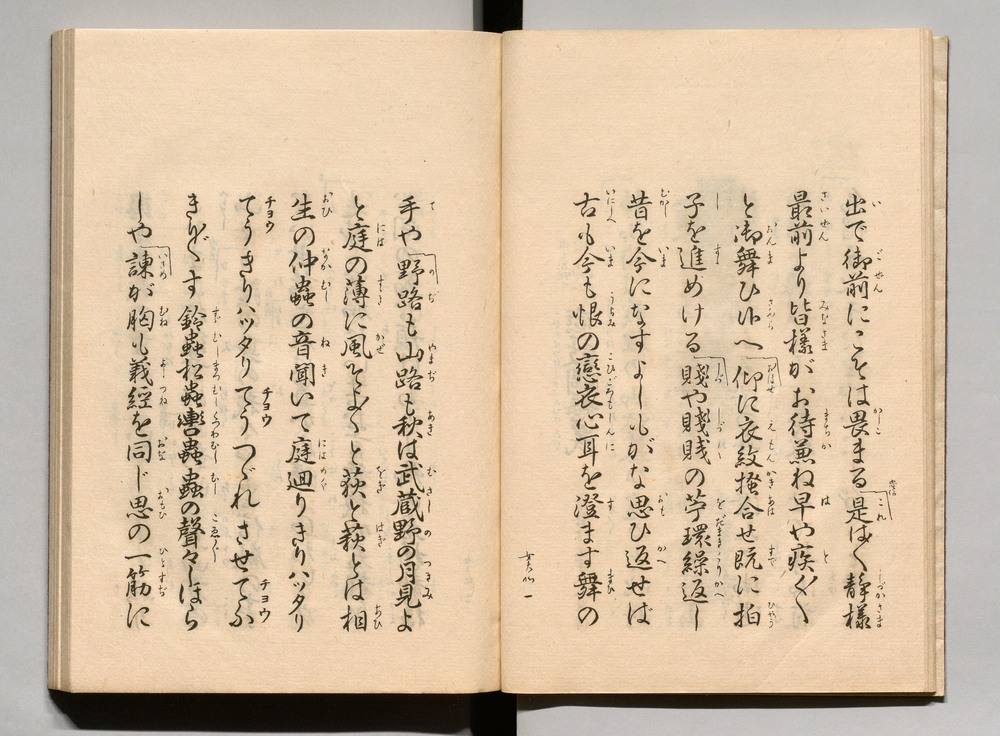 出で御前にこそは畏まる是は〱靜樣
最前より皆樣がお待兼ね早や疾く〱
と御舞ひ候へ仰に衣紋掻合せ既に拍
子を進めける賤や賤賤の苧環繰返し
昔を今になすよしもがな思ひ返せば
古も今も恨の戀衣心耳を澄ます舞の
手や野路も山路も秋は武蔵野の月見よ
と庭の薄に風そよ〱と荻と萩とは相
生の仲蟲の音聞いて庭廻りきりハッタリ
てうきりハッタリてうつゞれさせてふ
きり〲す鈴蟲松蟲轡蟲蟲の聲々しほら
しや諫が胸も義經を同じ思の一筋に